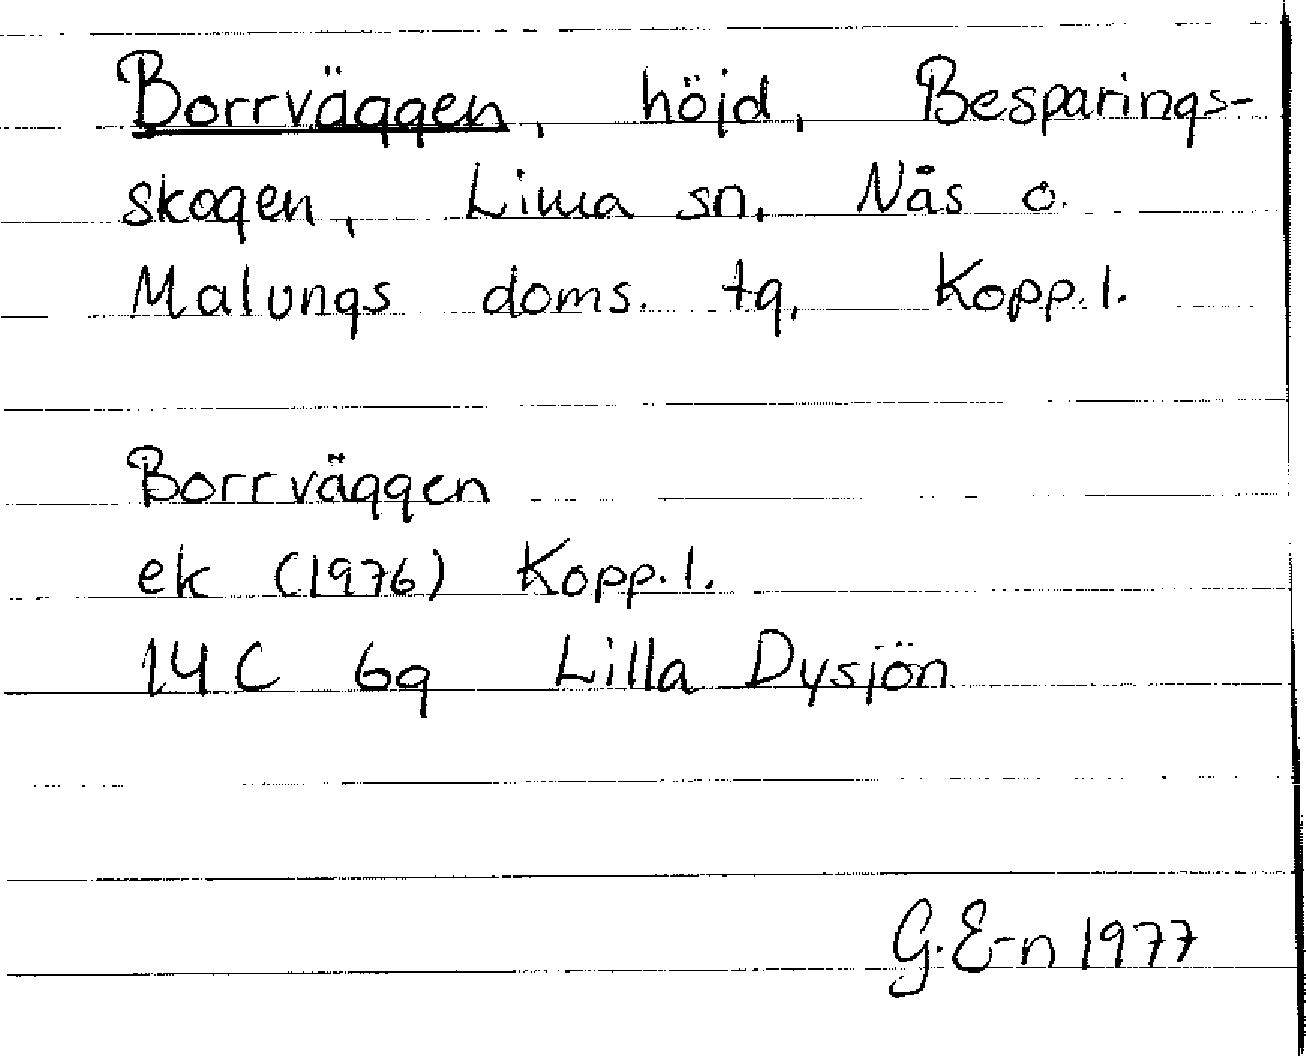 Borrväggen, höjd, Besparings-
skogen, Lima sn, Nås o.
Malungs doms. tg, Kopp.l.
Borrväggen
ek (1976) Kopp.l.
14C 6g Lilla Dysjön
G.E-n 1977